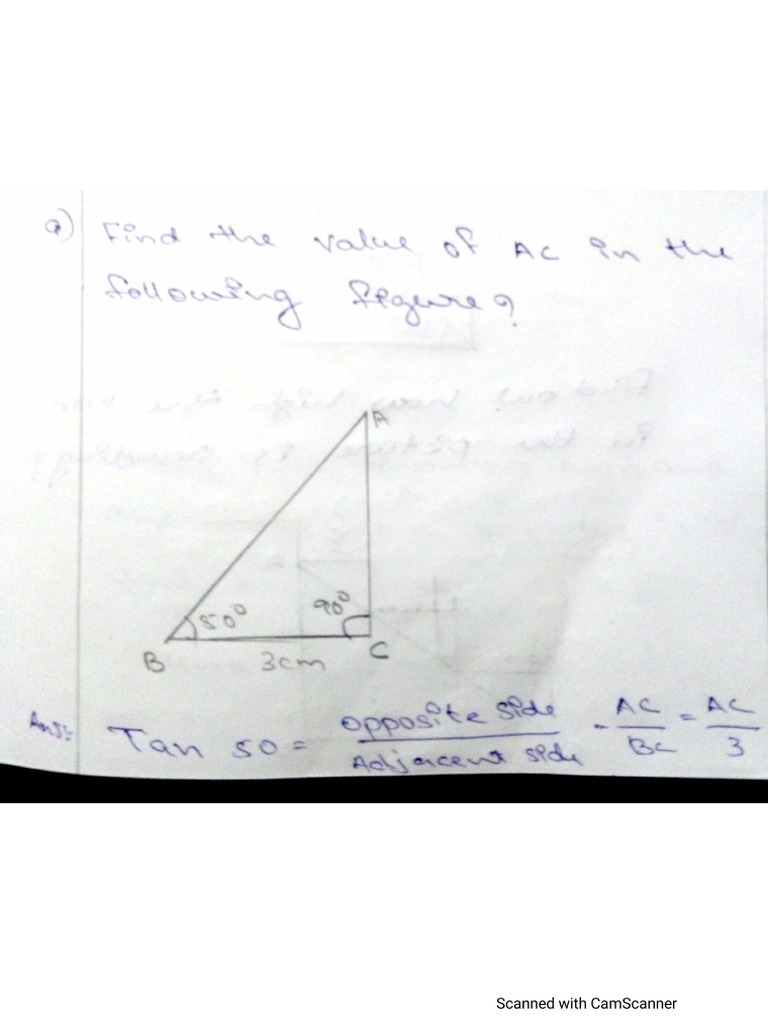 a) Find the value of AC in the
following figure?
A
50° 90°
B 3cm C
Ans:- Tan 50 = opposite side / Adjacent side = AC / BC = AC / 3
Scanned with CamScanner